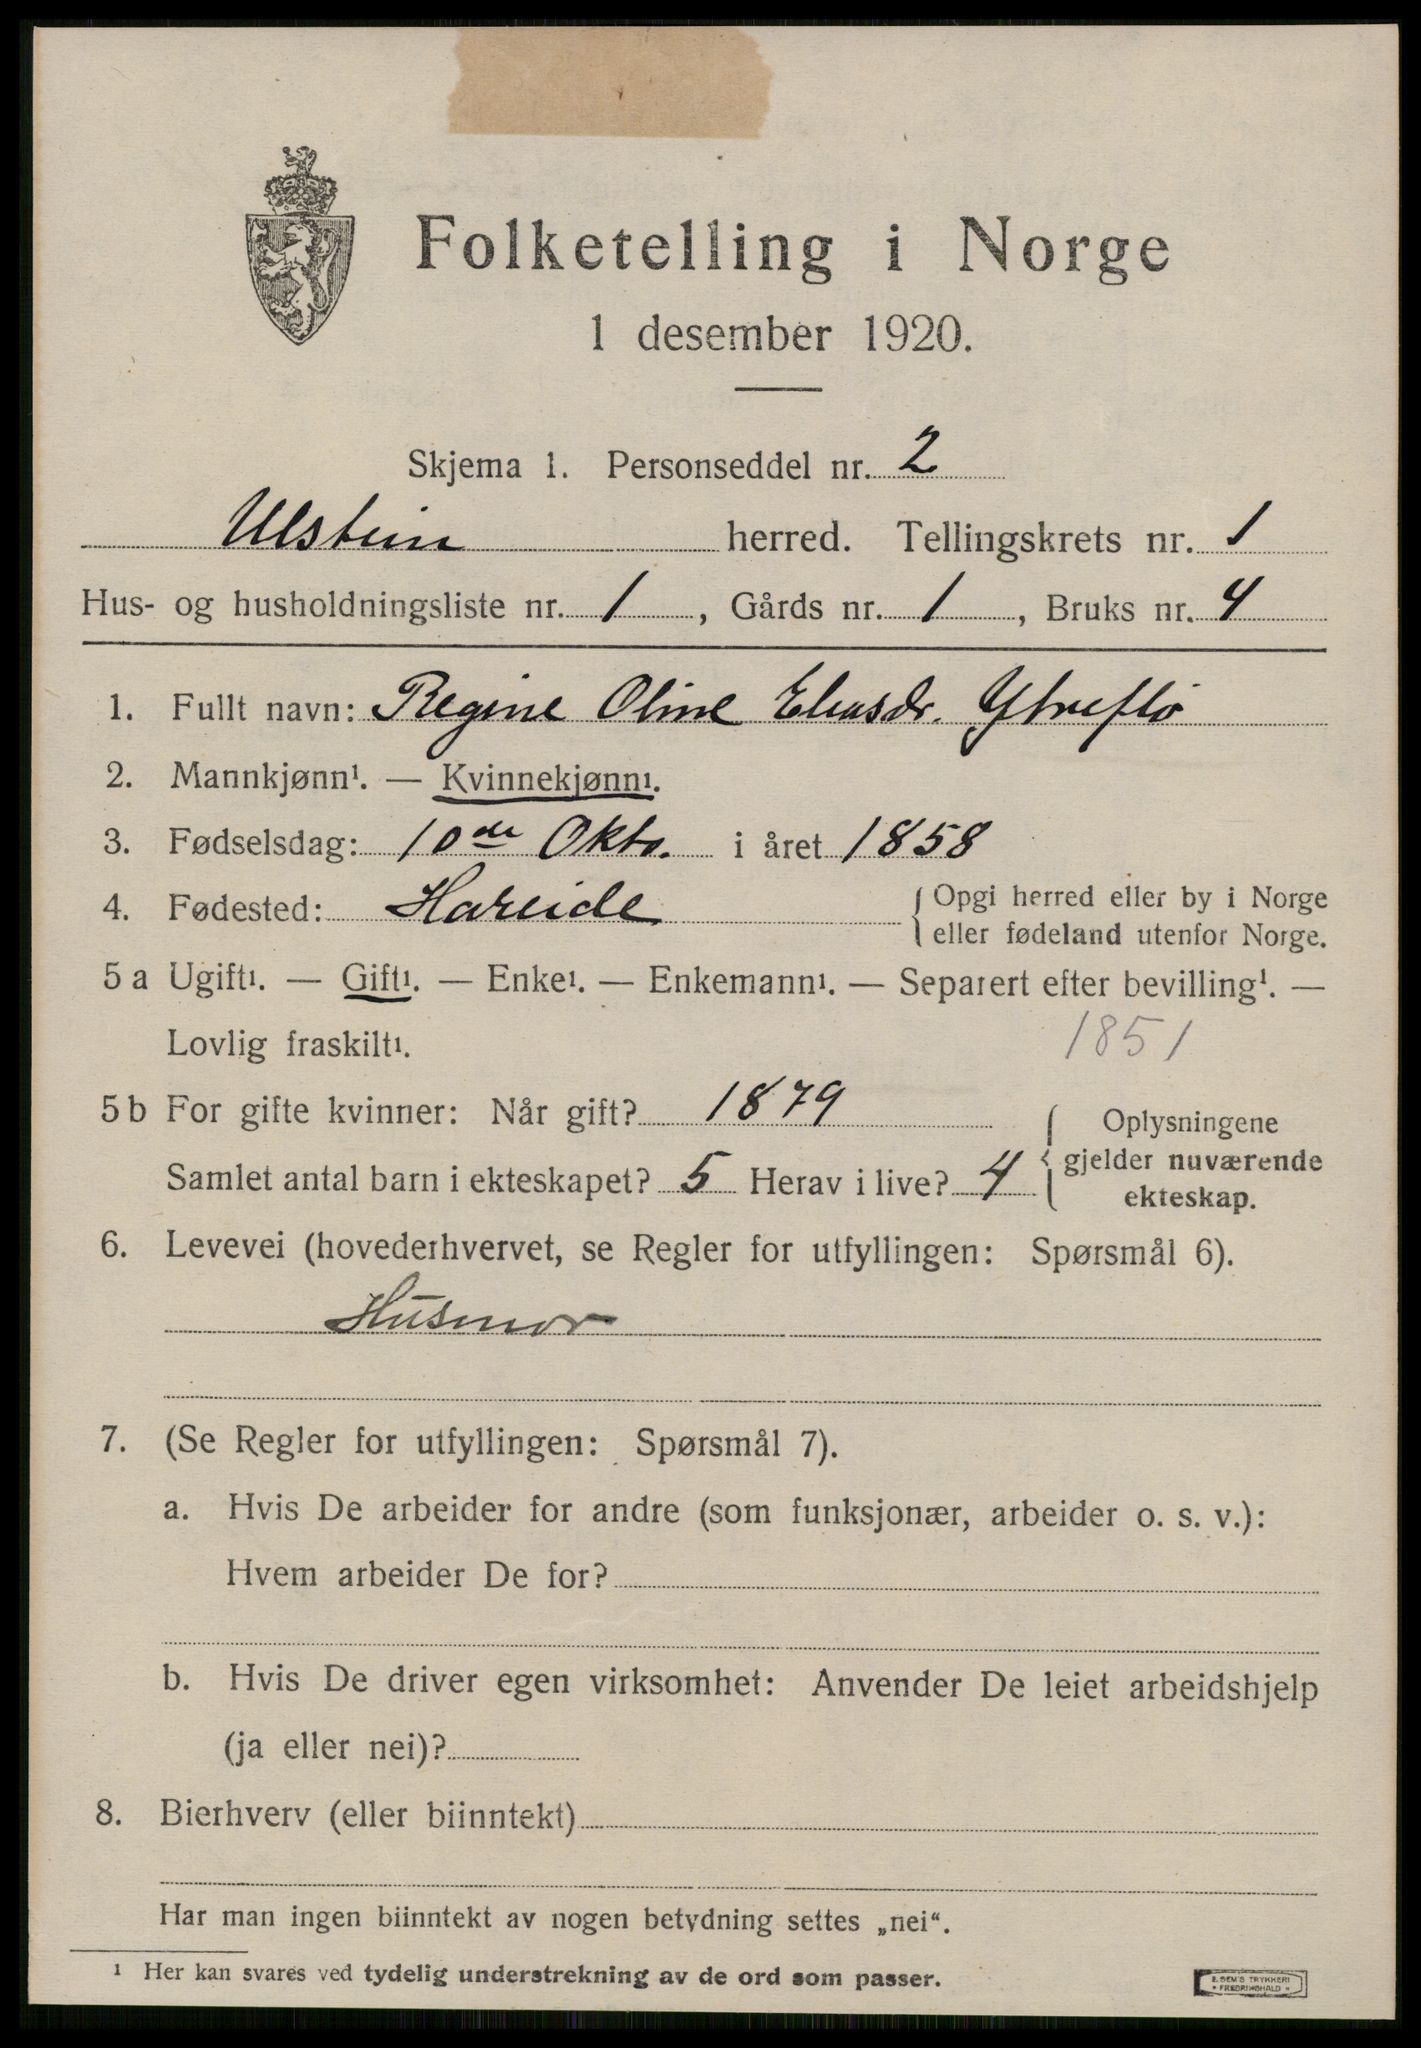 Folketelling i Norge
1 desember 1920.
Skjema 1. Personseddel nr. 2
Ulstein herred. Tellingskrets nr. 1
Hus- og husholdningsliste nr. 1, Gårds nr. 1, Bruks nr. 4
1. Fullt navn: Regine Oline Eliasdr. Ytreflø
2. Mannkjønn¹. — Kvinnekjønn¹.
3. Fødselsdag: 10de Okto. i året 1858
4. Fødested: Hareide { Opgi herred eller by i Norge
eller fødeland utenfor Norge.
5 a Ugift¹. — Gift¹. — Enke¹. — Enkemann¹. — Separert efter bevilling¹. —
Lovlig fraskilt¹. 1851
5 b For gifte kvinner: Når gift? 1879 { Oplysningene
Samlet antal barn i ekteskapet? 5 Herav i live? 4 gjelder nuværende
ekteskap.
6. Levevei (hovederhvervet, se Regler for utfyllingen: Spørsmål 6).
Husmor
7. (Se Regler for utfyllingen: Spørsmål 7).
a. Hvis De arbeider for andre (som funksjonær, arbeider o. s. v.):
Hvem arbeider De for?
b. Hvis De driver egen virksomhet: Anvender De leiet arbeidshjelp
(ja eller nei)?
8. Bierhverv (eller biinntekt)
Har man ingen biinntekt av nogen betydning settes „nei“.
¹ Her kan svares ved tydelig understrekning av de ord som passer.
E. SEM'S TRYKKERI
• FREDRIKSHALD •